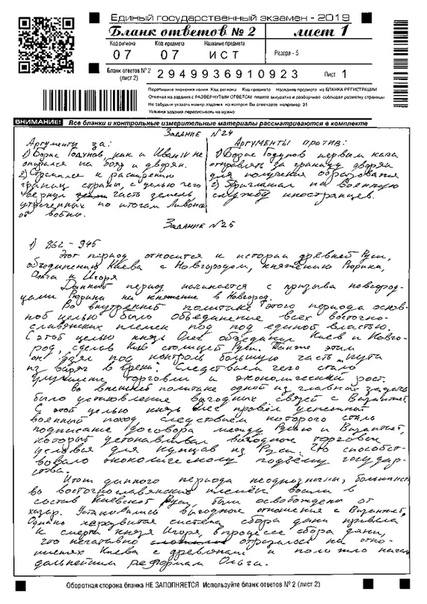 Единый государственный экзамен - 2019
Бланк ответов № 2
лист 1
Код региона
Код предмета
Название предмета
07
07
ИСТ
Резерв - 5
Бланк ответов № 2 (лист 2)
2949936910923
Лист 1
Перепишите значения полей "Код региона", "Код предмета", "Название предмета" из БЛАНКА РЕГИСТРАЦИИ.
Отвечая на задания с РАЗВЕРНУТЫМ ОТВЕТОМ, пишите аккуратно и разборчиво, соблюдая разметку страницы.
Не забудьте указать номер задания, на которое Вы отвечаете, например 31
ВНИМАНИЕ!
Все бланки и контрольные измерительные материалы рассматриваются в комплекте
Задание №24
Аргументы за:
1) Борис Годунов, как и Иван IV не
опирался на бояр и дворян.
2) Стремился к расширению
границ страны, с целью чего
вернул часть земель,
утраченных по итогам Ливонс
ой войны.
Аргументы против:
1) Борис Годунов первым начал
отправлять за границу дворян
для получения образования
2) Приглашал на военную
службу иностранцев.
Задание №25
1) 862-945
Этот период относится к истории древней Руси,
объединению Киева с Новгородом, княжению Рюрика,
Олега и Игоря
Данный период начинается с призыва новгород-
цами Рюрика на княжение в Новгород.
Во внутренней политике этого периода основ-
ной целью было объединение всех восточно-
славянских племен под единой властью.
С этой целью князь Олег объединил Киев и Новго-
род, сделав Киев столицей Руси. Также этим
он взял под контроль большую часть пути
из варяг в греки. Следствием чего стало
улучшение торговли и экономический рост.
Во внешней политике одной из главной задачей
было установление выгодных связей с Византией
С этой целью князь Олег провёл успешный
военный поход следствием которого стало
подписание договора между Русью и Византией,
который устанавливал выгодное торговые
условия для купцов из Руси. Это способст-
вовало экономическому подъёму государ-
ства.
Итоги данного периода неоднозначны, большинст
во восточнославянских племен вошли в
состав Киевской Руси, были освобождены от
хазар. Установились выгодное отношения с Византией,
Однако неразвитая система сбора дани привела
к смерти князя Игоря, в процессе сбора дани,
что негативно отразилось на отно-
шениях Киева с древлянами и положило начало
дальнейшим реформам Ольги.
Оборотная сторона бланка НЕ ЗАПОЛНЯЕТСЯ. Используйте бланк ответов № 2 (лист 2)